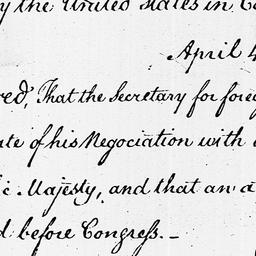 y the United States in C
April 4
red, That the Secretary for fore
ate of his Negociation with
ic Majesty, and that an a
d before Congress. –